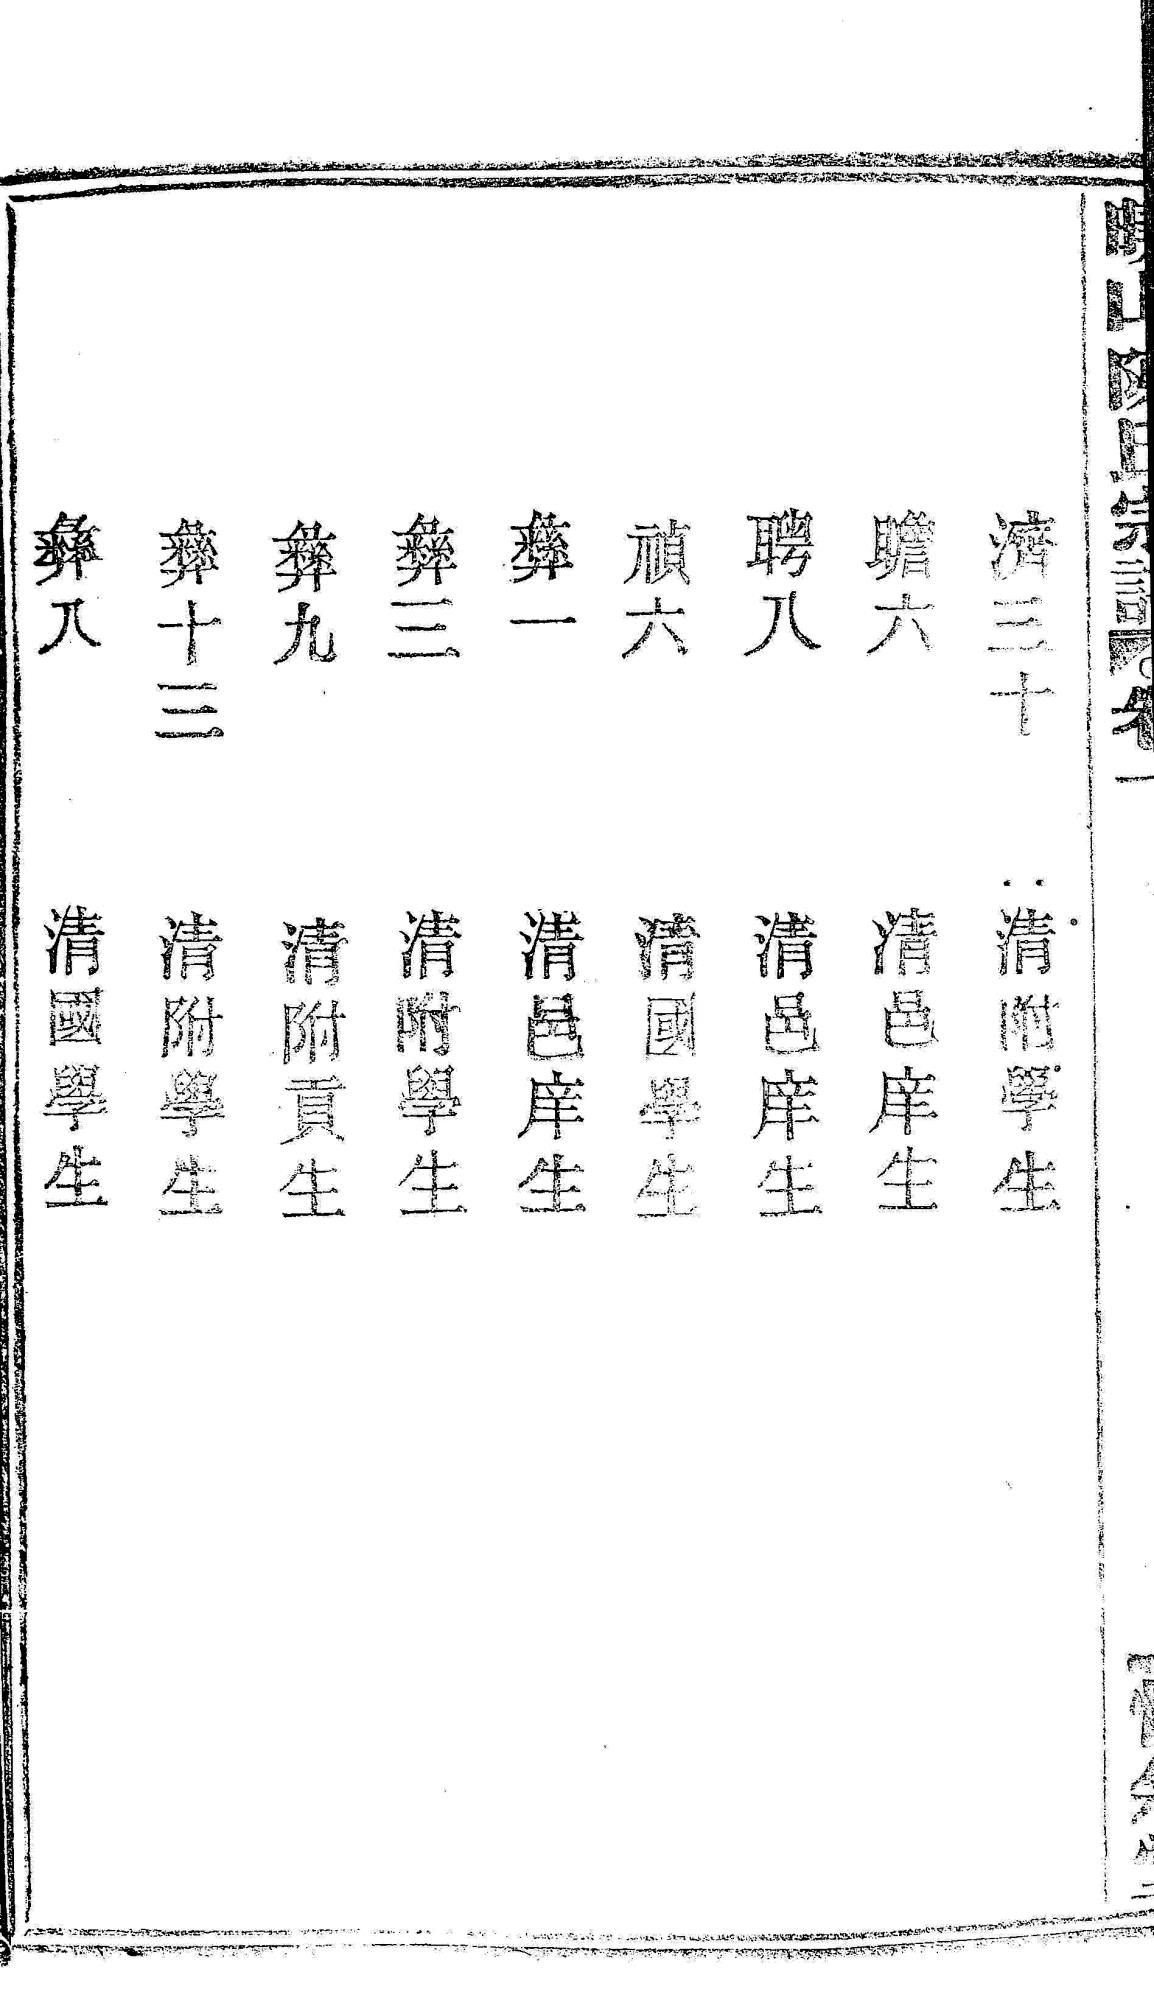 山陳氏宗譜 卷一
濟三十 清附學生
瞻六 清邑庠生
聘八 清邑庠生
禎六 清國學生
彝一 清邑庠生
彝三 清附學生
彝九 清附貢生
彝十三 清附學生
彝八 清國學生